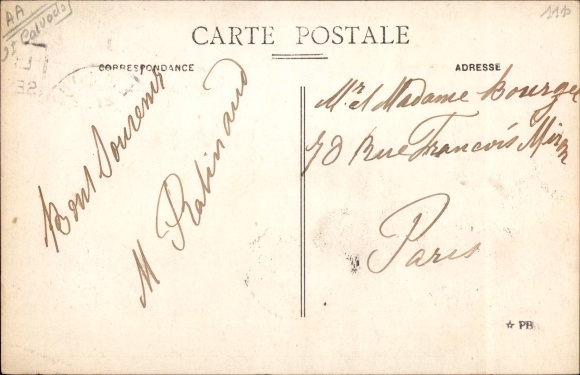 AA
Calvados
CARTE POSTALE
CORRESPONDANCE
ADRESSE
Bons Souvenirs
M Rabinaud
Mr et Madame Bourge
70 Rue Francois Miron
Paris
☆ PB